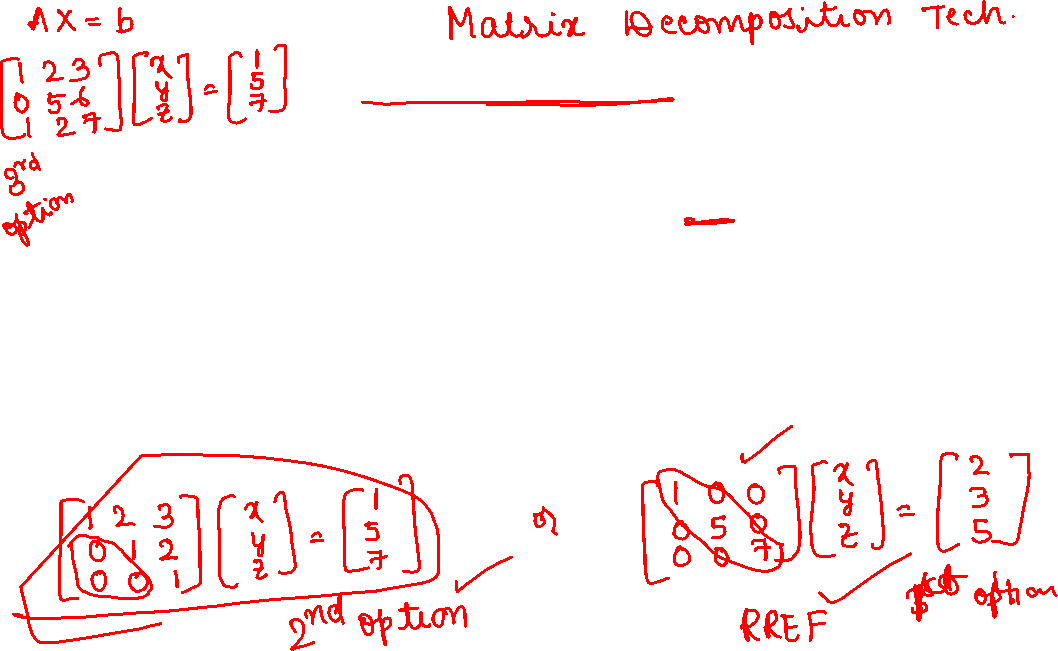 AX = b
Matrix Decomposition Tech.
[1 2 3; 0 5 6; 1 2 7] [x; y; z] = [1; 5; 7]
3rd option
[1 2 3; 0 1 2; 0 0 1] [x; y; z] = [1; 5; 7]
2nd option
or
[1 0 0; 0 5 0; 0 0 7] [x; y; z] = [2; 3; 5]
RREF
option